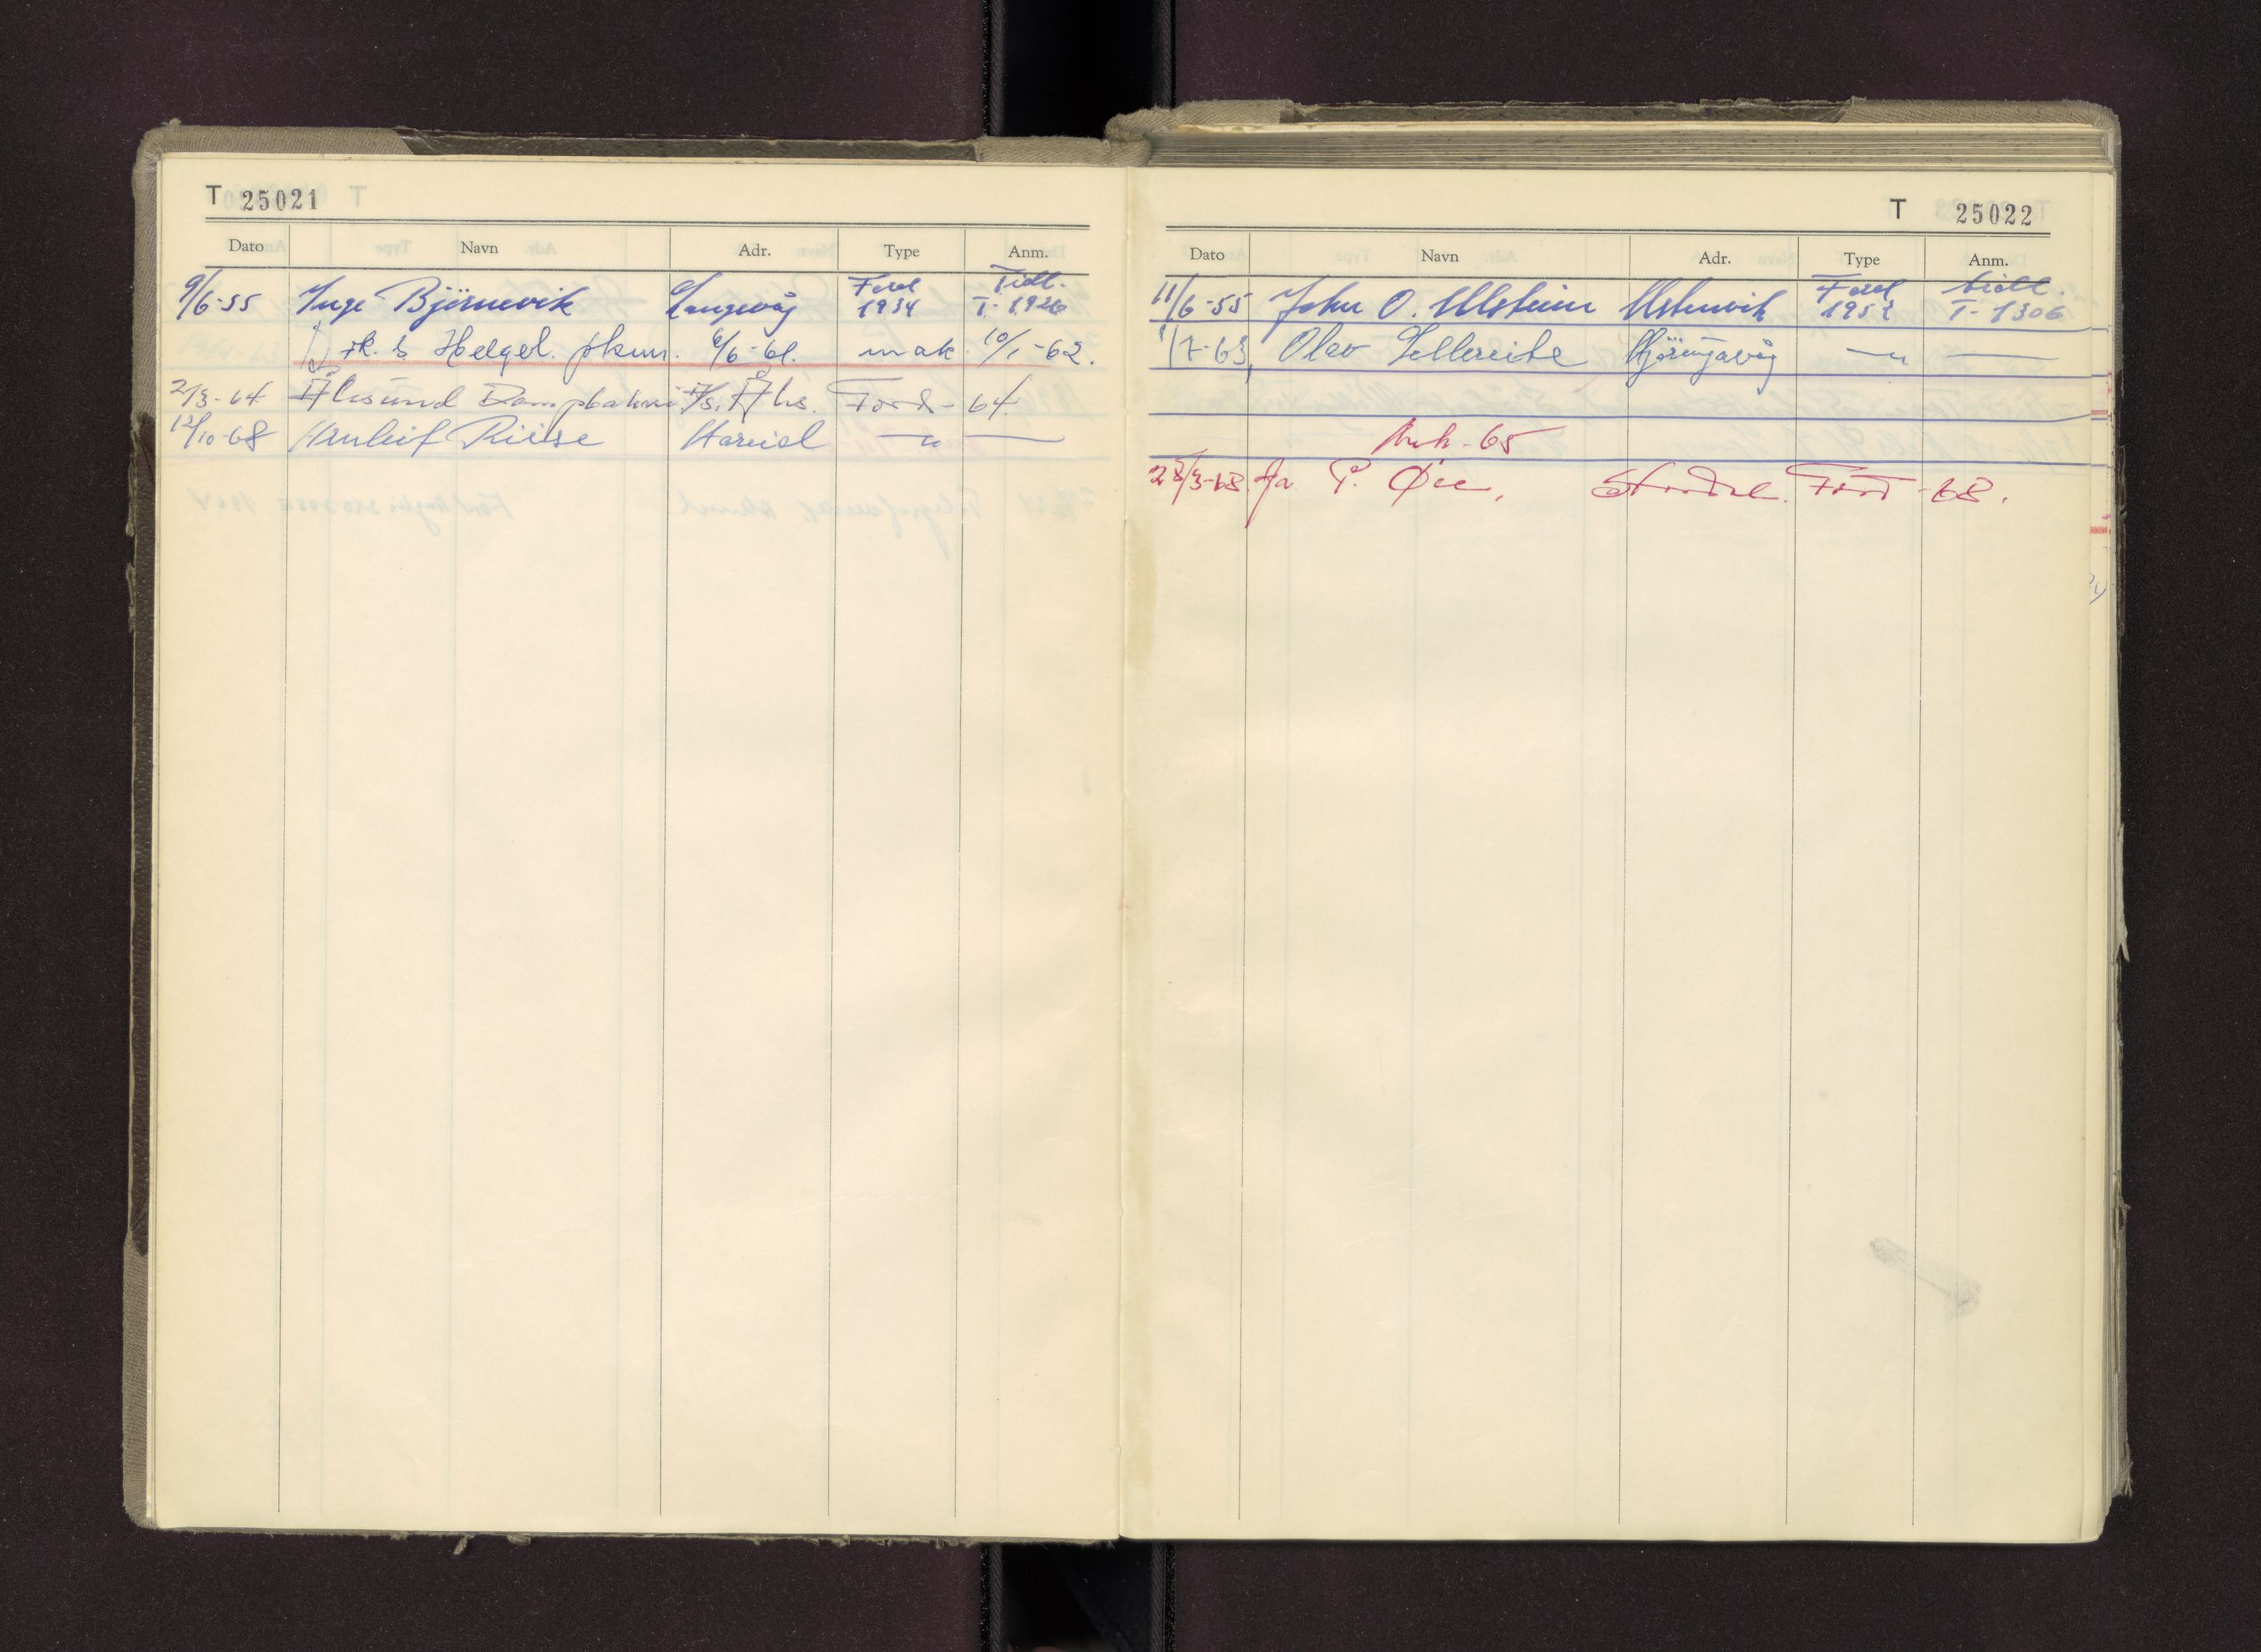 T 25021
Dato Navn Adr. Type Anm.
9/6-55 Inge Björnevik Langevåg Ford 1934 Tidl. T-1926
Helgel. 6/6-61. mak. 10/1-62.
2/3-64 Ålesund Dampbakeri A/s. Åls. Ford - 64
12/10-68 Arnleif Riise Hareid — " —
T 25022
Dato Navn Adr. Type Anm.
11/6-55 John O. Ulstein Ulsteinvik Ford 1952 tidl. T-1306
/7-63, Olav Hjörungavåg — " —
- 65
28/3-68. P. Øie, Ford - 68.